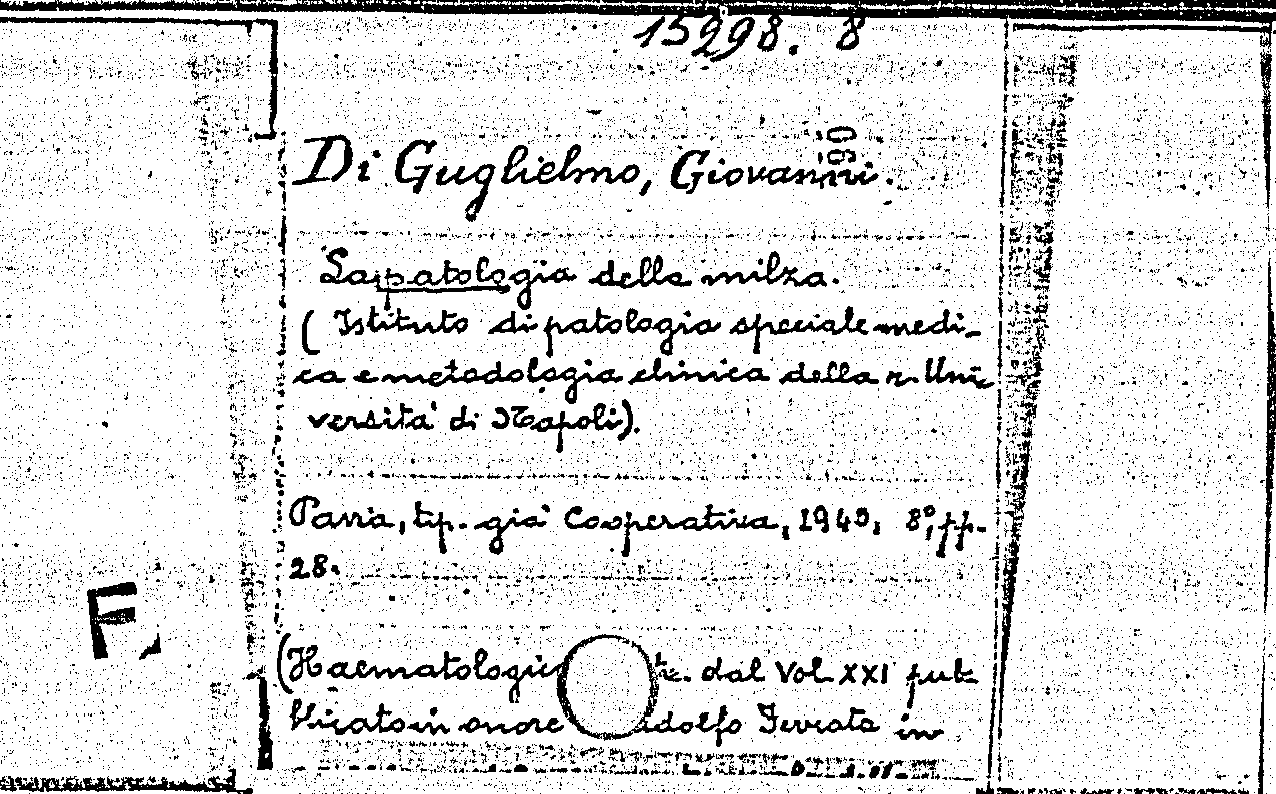 15298. 8
90
Di Guglielmo, Giovanni.
La patologia della milza.
( Istituto di patologia speciale medi-
ca e metodologia clinica della r. Uni-
versità di Napoli).
Pavia, tip. già Cooperativa, 1940, 8°, pp.
28.
(Haematologic te. dal Vol. XXI pub-
blicato in onore dolfo Ferrata in
F.